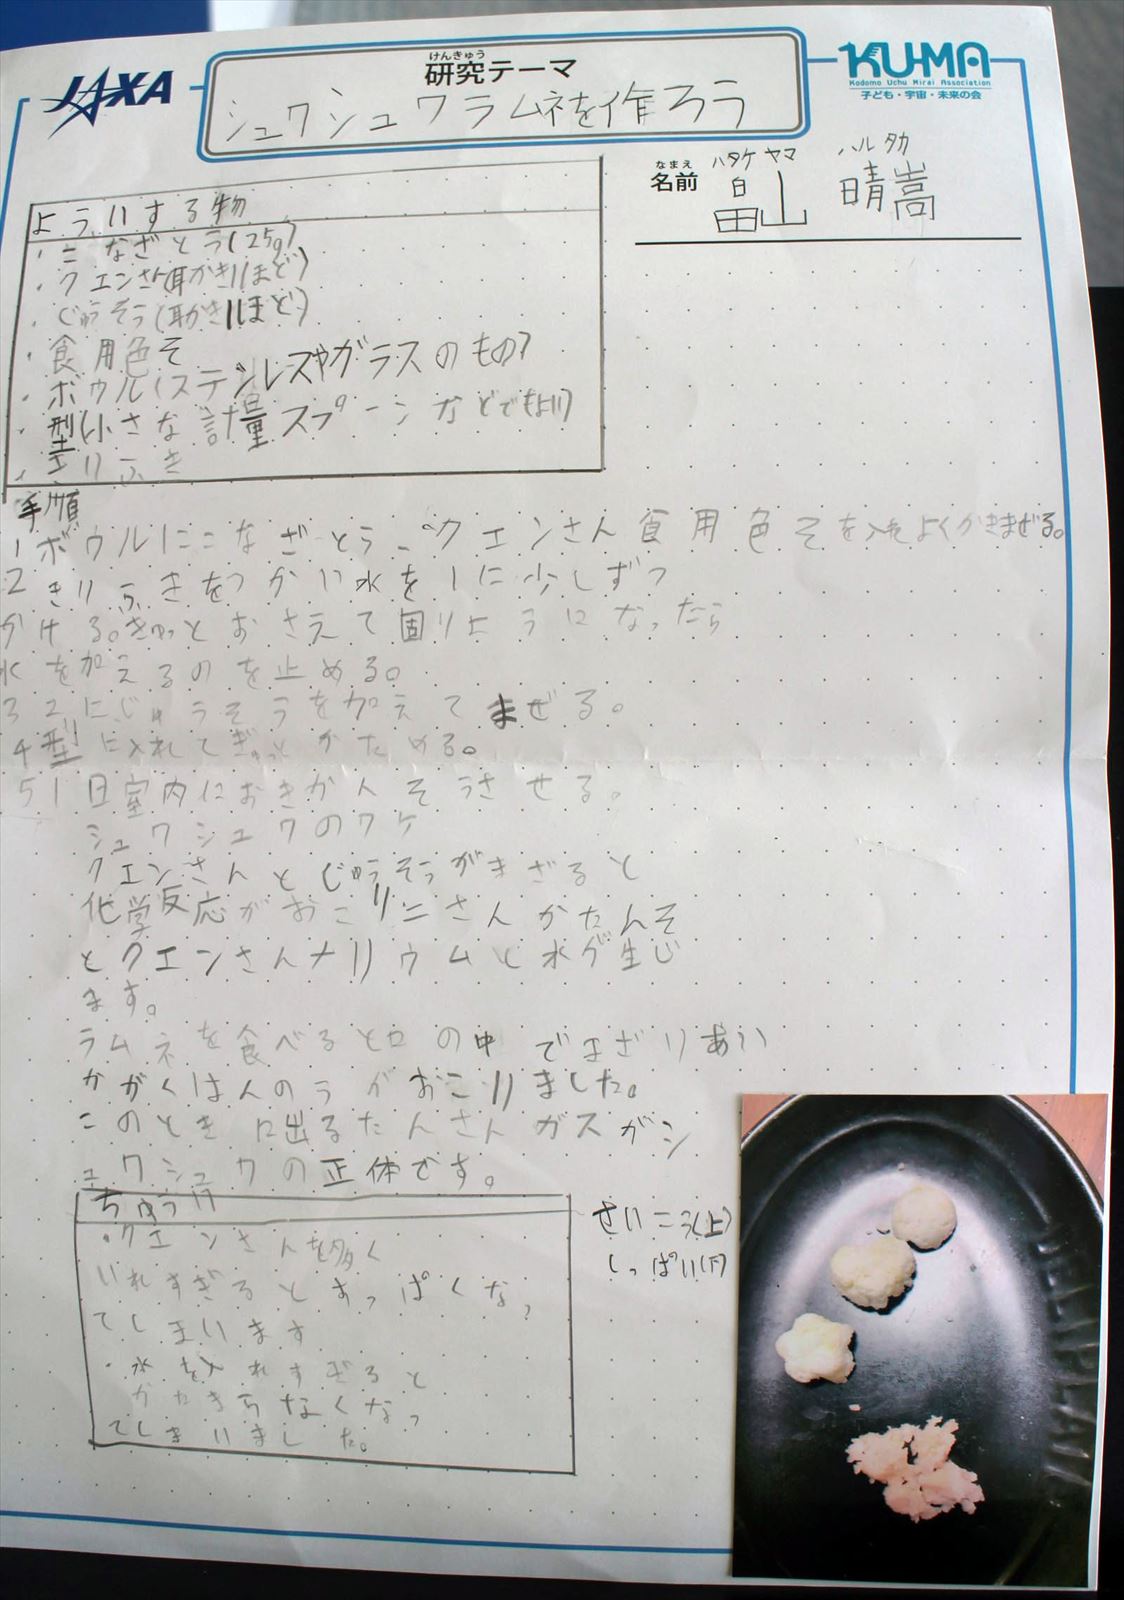 JAXA
けんきゅう
研究テーマ
シュワシュワラムネを作ろう
KU-MA
Kodomo Uchu Mirai Association
子ども・宇宙・未来の会
なまえ ハタケヤマ ハルタカ
名前 畠山 晴嵩
よういする物
・こなざとう(25g)
・クエンさん(耳かき1ほど)
・じゅうそう(耳かき1ほど)
・食用色そ
・ボウル(ステンレスやガラスのもの)
・型(小さな計量スプーンなどでもよい)
・きりふき
手順
1ボウルにこなざとう、クエンさん食用色そを入れよくかきまぜる。
2きりふきをつかい水を1に少しずつ
かける。きゅっとおさえて固りようになったら
水を加えるのを止める。
3 2にじゅうそうを加えてまぜる。
4型に入れてぎゅっとかためる。
5 1日室内におきかんそうさせる。
シュワシュワのワケ
クエンさんとじゅうそうがまざると
化学反応がおこりニさんかたんそ
とクエンさんナリウムと水が生じ
ます。
ラムネを食べると口の中でまざりあい
かがくはんのうがおこりました。
このときに出るたんさんガスがシ
ュワシュワの正体です。
ちゅうい
・クエンさんを多く
いれすぎるとすっぱくなっ
てしまいます
・水を入れすぎると
かたまらなくなっ
てしまいました。
せいこう(上)
しっぱい(下)